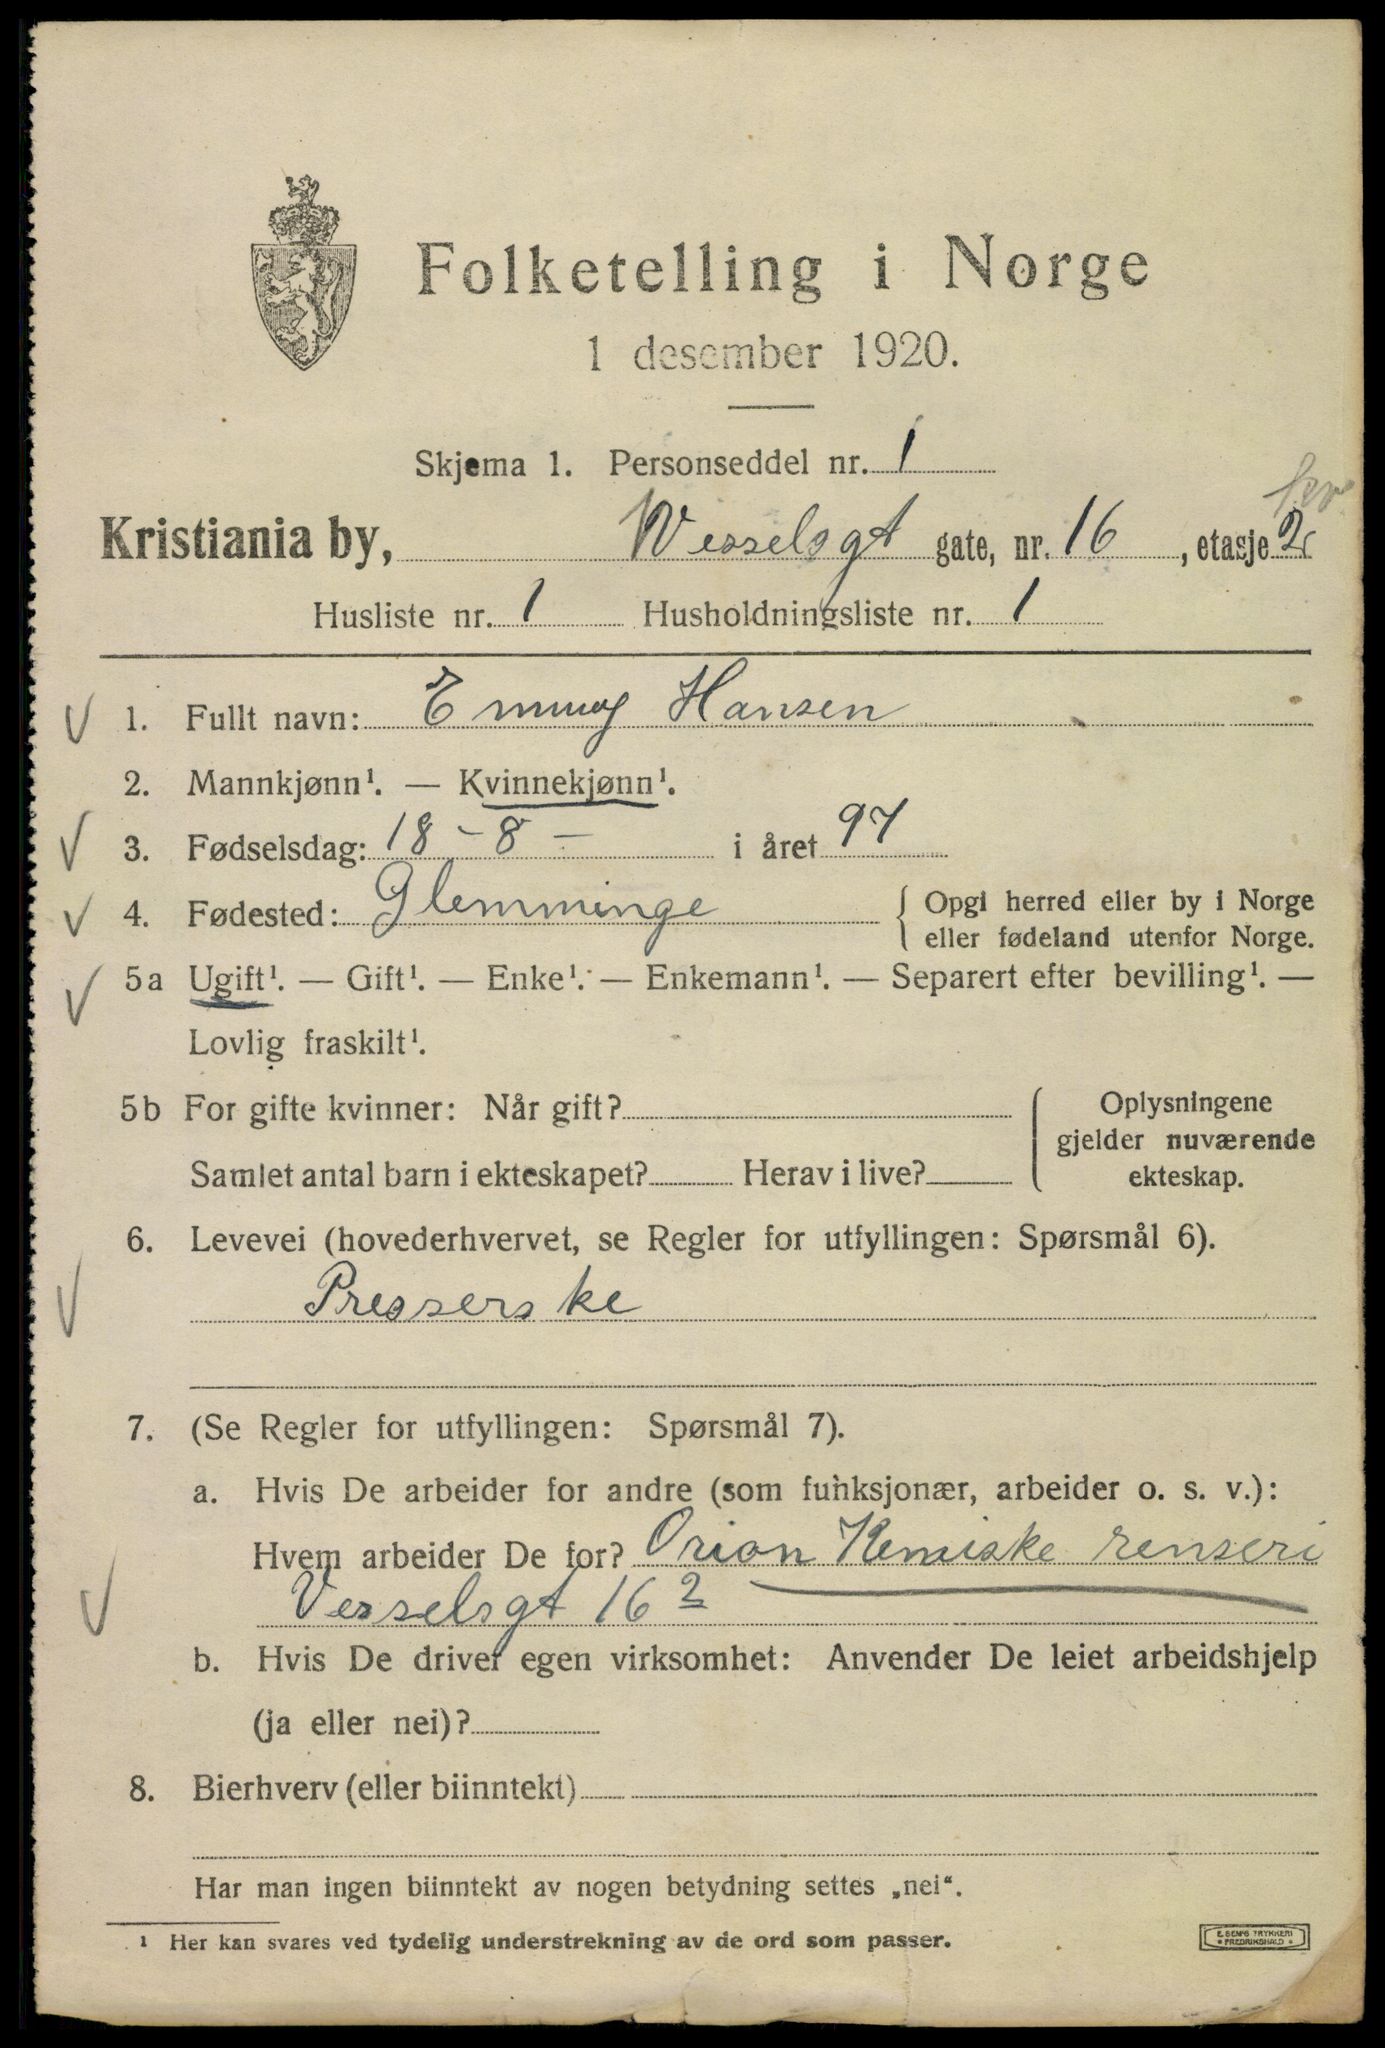 Folketelling i Norge
1 desember 1920.
Skjema 1. Personseddel nr. 1
Kristiania by, Wesselsgt gate, nr. 16, etasje 2
Husliste nr. 1 Husholdningsliste nr. 1
1. Fullt navn: Emmy Hansen
2. Mannkjønn¹. — Kvinnekjønn¹.
3. Fødselsdag: 18 – 8 – i året 97
4. Fødested: Glemminge { Opgi herred eller by i Norge
eller fødeland utenfor Norge.
5a Ugift¹. — Gift¹. — Enke¹. — Enkemann¹. — Separert efter bevilling¹. —
Lovlig fraskilt¹.
5b For gifte kvinner: Når gift? { Oplysningene
gjelder nuværende
Samlet antal barn i ekteskapet? Herav i live? ekteskap.
6. Levevei (hovederhvervet, se Regler for utfyllingen: Spørsmål 6).
Presserske
7. (Se Regler for utfyllingen: Spørsmål 7).
a. Hvis De arbeider for andre (som funksjonær, arbeider o. s. v.):
Hvem arbeider De for? Orion Kemiske renseri
Vesselsgt 16 2
b. Hvis De driver egen virksomhet: Anvender De leiet arbeidshjelp
(ja eller nei)?
8. Bierhverv (eller biinntekt)
Har man ingen biinntekt av nogen betydning settes „nei“.
¹ Her kan svares ved tydelig understrekning av de ord som passer.
E. SEM'S TRYKKERI
* FREDRIKSHALD *